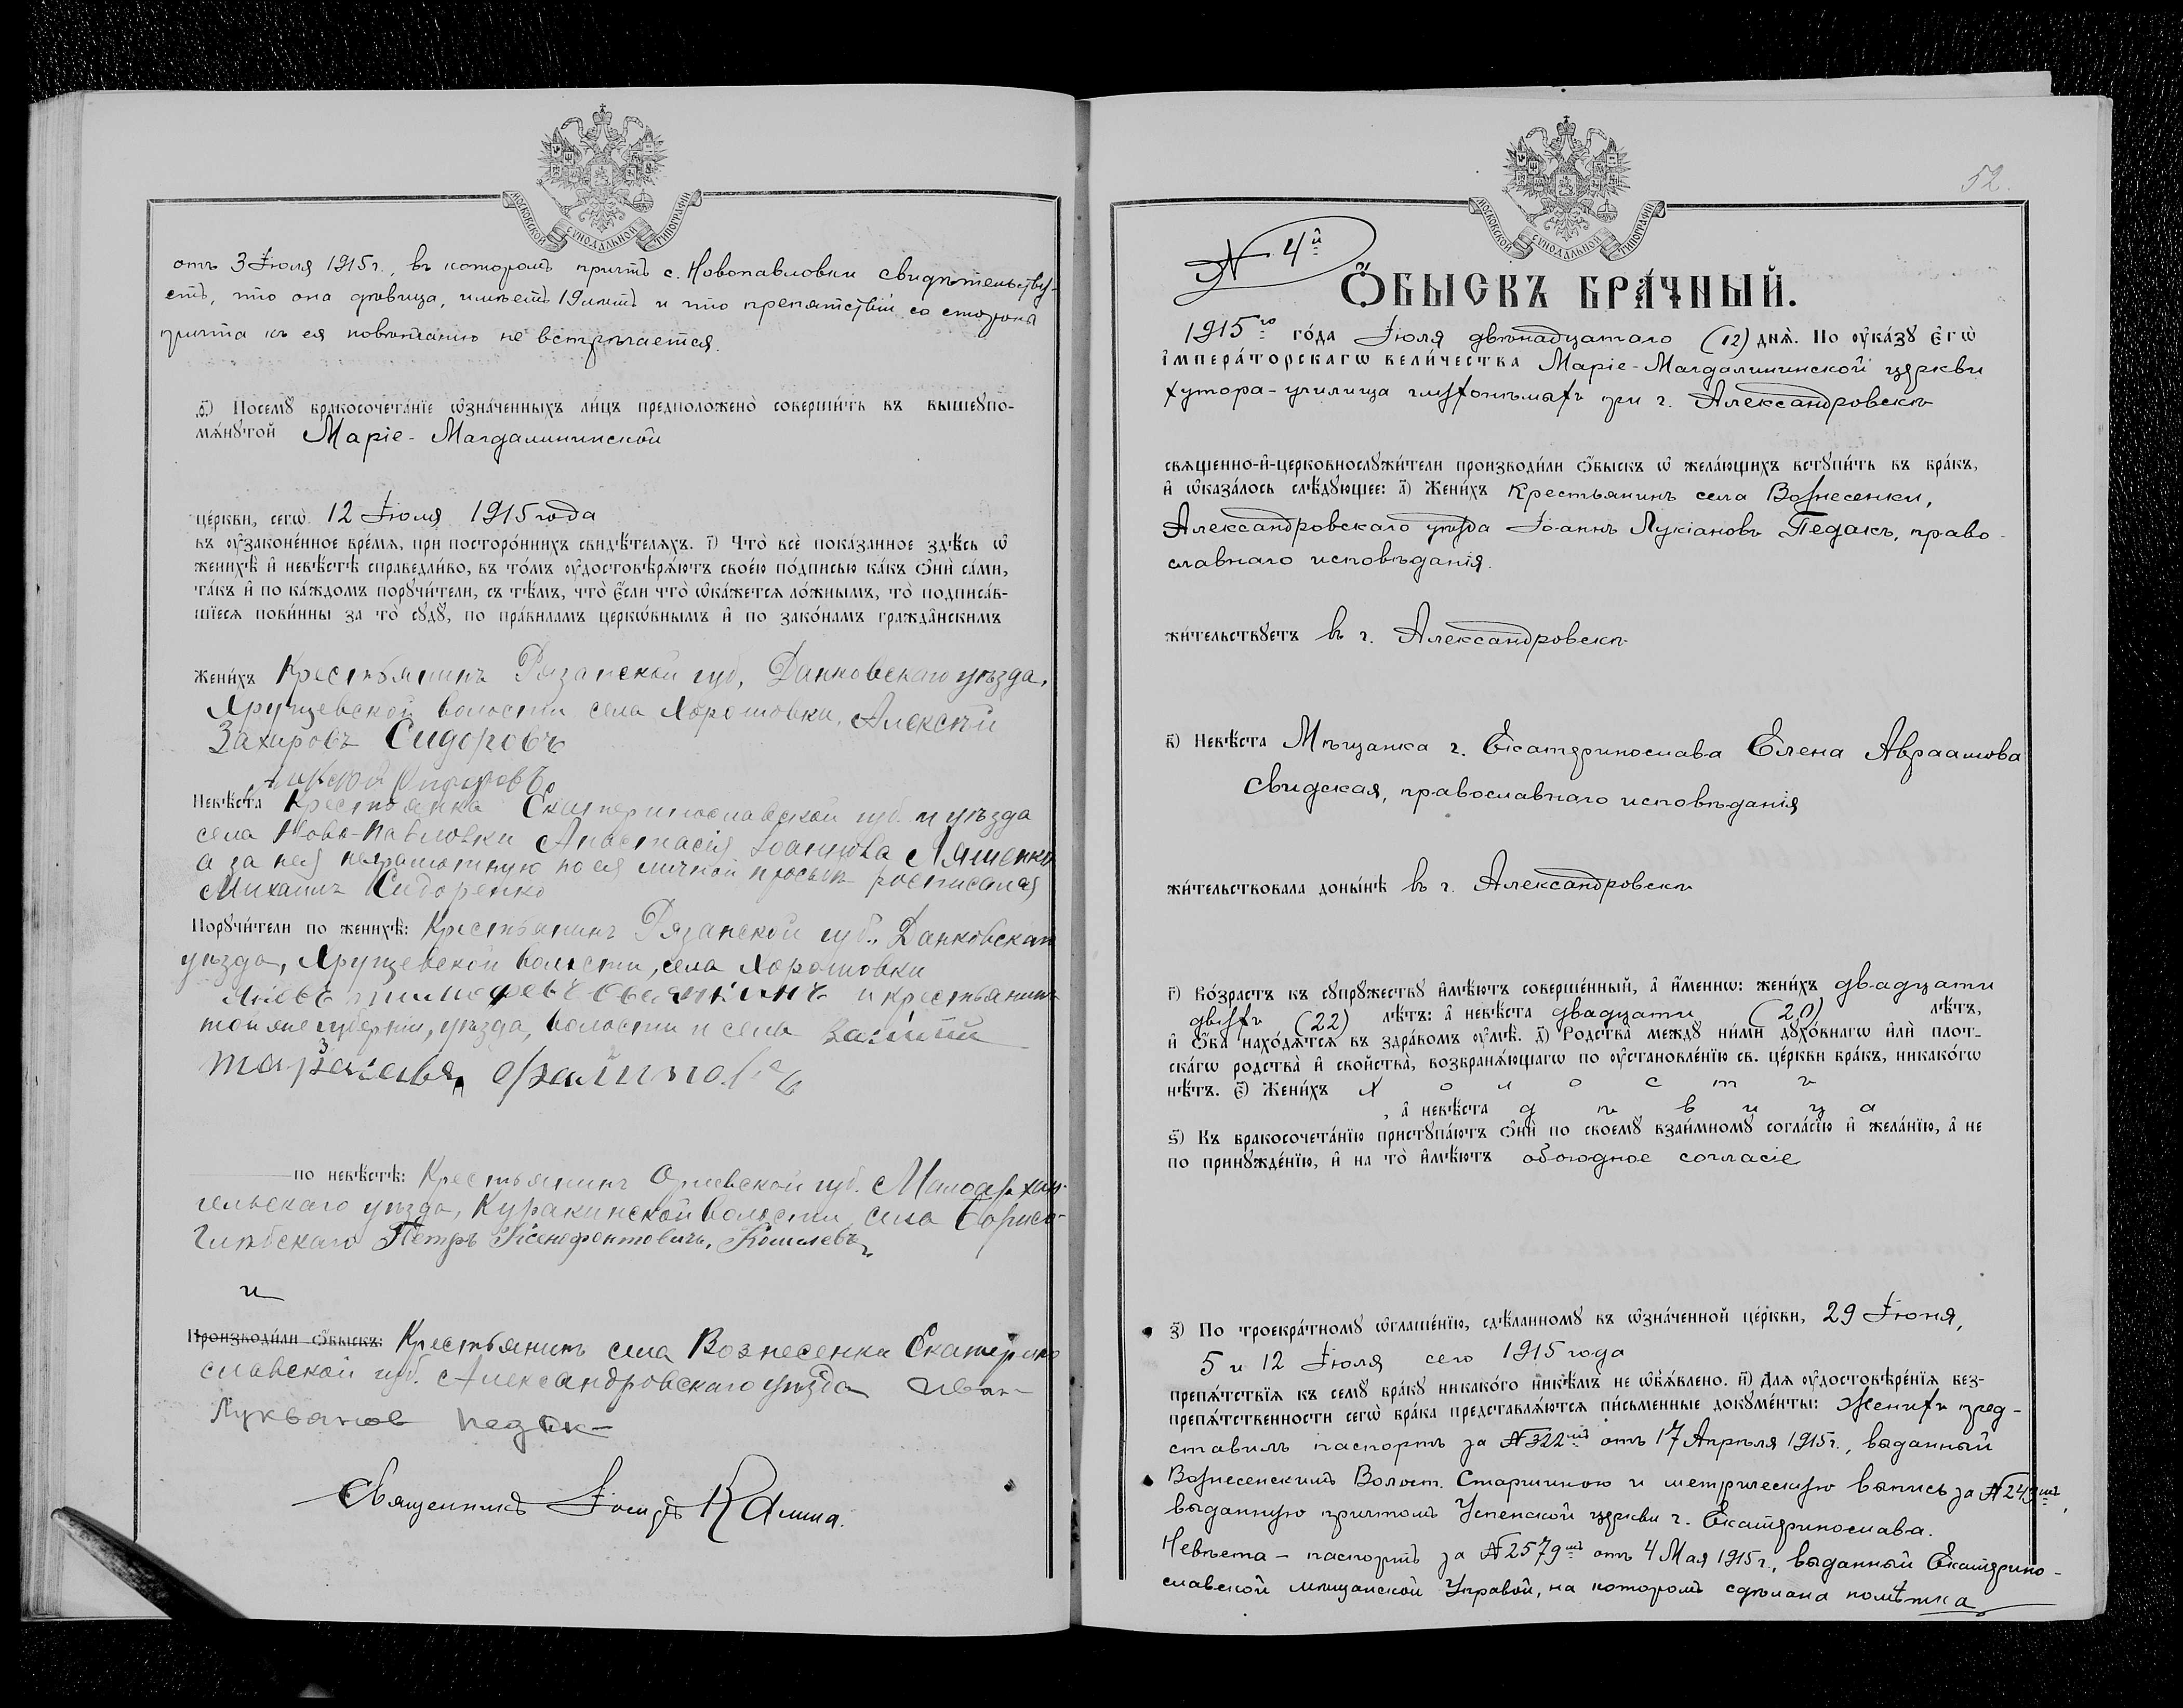 МОСКОВСКОЙ СѴНОДАЛЬНОЙ ТИПОГРАФІИ
отъ 3 Іюля 1915 г., въ которомъ причтъ с. Новопавловки свидѣтельству-
етъ, что она дѣвица, имѣетъ 19 лѣтъ и что препятствій со стороны
причта къ ея повѣнчанію не встрѣчается.
ѳ҃) Посемꙋ̀ бракосочета́нїе ѡ҆зна́ченныхъ ли́цъ предположено̀ соверши́ть въ вышеꙋпо-
мѧ́нꙋтой Маріе-Магдалининской
це́ркви, сегѡ̀ 12 Іюля 1915 года
въ ᲂу҆зако́ненное вре́мѧ, при посторо́ннихъ свидѣ́телѧхъ. і҃) Что̀ всѐ пока́занное здѣ́сь ѡ҆
женихѣ̀ и҆ невѣ́стѣ справедли́во, въ то́мъ ᲂу҆достовѣрѧ́ютъ свое́ю по́дписью ка́къ ѻ҆нѝ са́ми,
та́къ и҆ по ка́ждомъ порꙋчи́тели, съ тѣ́мъ, что̀ є҆́сли что̀ ѡ҆ка́жетсѧ ло́жнымъ, то̀ подписа́в-
шїесѧ пови́нны за то̀ сꙋдꙋ̀, по пра́виламъ церкѡ́внымъ и҆ по зако́намъ гражда́нскимъ
Жени́хъ Крестьянинъ Рязанской губ., Данковскаго уѣзда,
Хрущевской волости села Хорошовки, Алексѣй
Захаровъ Сидоровъ
Невѣ́ста Крестьянка Екатеринославской губ. и уѣзда
села Ново-Павловки Анастасія Іоаннова Ляшенко
а за нея неграмотную по ея личной просьбѣ росписался
Михаилъ Сидоренко
Порꙋчи́тели по женихѣ̀: Крестьянинъ Рязанской губ., Данковскаго
уѣзда, Хрущевской волости, села Хорошовки
и крестьянинъ
той же губерніи, уѣзда, волости и села
по невѣ́стѣ: Крестьянинъ Орловской губ. Малоархан-
гельскаго уѣзда, Куракинской волости, села Борисо-
Глѣбскаго Петръ Ксенофонтовичъ, Кошелевъ
и
Производи́ли ѻ҆́быскъ: Крестьянинъ села Вознесенки Екатерино
славской губ. Александровскаго уѣзда Иван
Лукьянов Педак
Священникъ Іосифъ Калина.
52.
МОСКОВСКОЙ СѴНОДАЛЬНОЙ ТИПОГРАФІИ
№ 4й
Ѻ҆́БЫСКЪ БРА́ЧНЫЙ.
1915го го́да Іюля двѣнадцатаго (12) днѧ̀. По ᲂу҆ка́зꙋ Є҆гѡ̀
І҆мпера́торскагѡ вели́чества Маріе-Магдалининской церкви
хутора-училища глухонѣмыхъ при г. Александровскѣ
свѧще́нно-и҆-церковнослꙋжи́тели производи́ли ѻ҆́быскъ ѡ҆ жела́ющихъ встꙋпи́ть въ бра́къ,
и҆ ѡ҆каза́лось слѣ́дꙋющее: а҃) Жени́хъ Крестьянинъ села Вознесенки,
Александровскаго уѣзда Іоаннъ Лукіановъ Педакъ, право-
славнаго исповѣданія.
жи́тельствꙋетъ въ г. Александровскѣ
в҃) Невѣ́ста Мѣщанка г. Екатеринослава Елена Авраамова
Свидская, православнаго исповѣданія
жи́тельствовала доны́нѣ въ г. Александровскѣ
г҃) Во́зрастъ къ сꙋпрꙋ́жествꙋ и҆мѣ́ютъ соверше́нный, а҆ и҆́меннѡ: жени́хъ двадцати
двухъ (22) лѣ́тъ: а҆ невѣ́ста двадцати (20) лѣ́тъ,
и҆ ѻ҆́ба нахо́дѧтсѧ въ здра́вомъ ᲂу҆мѣ̀. д҃) Родства̀ междꙋ̀ ни́ми дꙋхо́внагѡ и҆лѝ плот-
ска́гѡ родства̀ и҆ свойства̀, возбранѧ́ющагѡ по ᲂу҆становле́нїю св. це́ркви бра́къ, никако́гѡ
нѣ́тъ. є҃) Жени́хъ х о л о с т ъ
, а҆ невѣ́ста д ѣ в и ц а
ѕ҃) Къ бракосочета́нїю пристꙋпа́ютъ ѻ҆нѝ по своемꙋ̀ взаи́мномꙋ согла́сїю и҆ жела́нїю, а҆ не
по принꙋжде́нїю, и҆ на то̀ и҆мѣ́ютъ обоюдное согласіе
з҃) По троекра́тномꙋ ѡ҆глаше́нїю, сдѣ́ланномꙋ въ ѡ҆зна́ченной це́ркви, 29 Іюня,
5 и 12 Іюля сего 1915 года
препѧ́тствїѧ къ семꙋ̀ бра́кꙋ никако́гѡ никѣ́мъ не ѡ҆б̾ѧ́влено. и҃) Длѧ ᲂу҆достовѣре́нїѧ без-
препѧ́тственности сегѡ̀ бра́ка представлѧ́ютсѧ пи́сьменные докꙋме́нты: Женихъ пред-
ставилъ паспортъ за №322мъ отъ 17 Апрѣля 1915 г., выданный
Вознесенскимъ Волост. Старшиною и метрическую выпись за №243мъ,
выданную причтомъ Успенской церкви г. Екатеринослава.
Невѣста – паспортъ за №2579мъ отъ 4 Мая 1915 г., выданный Екатерино-
славской мѣщанской Управой, на которомъ сдѣлана помѣтка